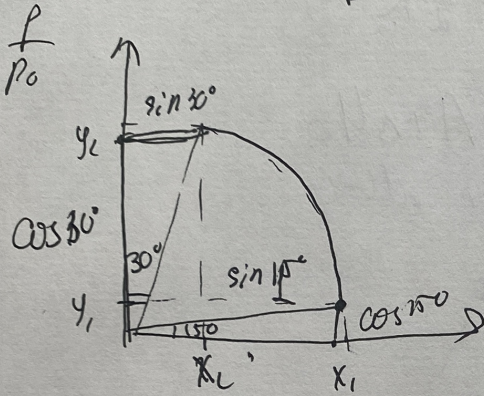 P
P₀
sin30°
y₂
cos30°
30°
sin15°
y₁
15°
cos15°
x₂
x₁